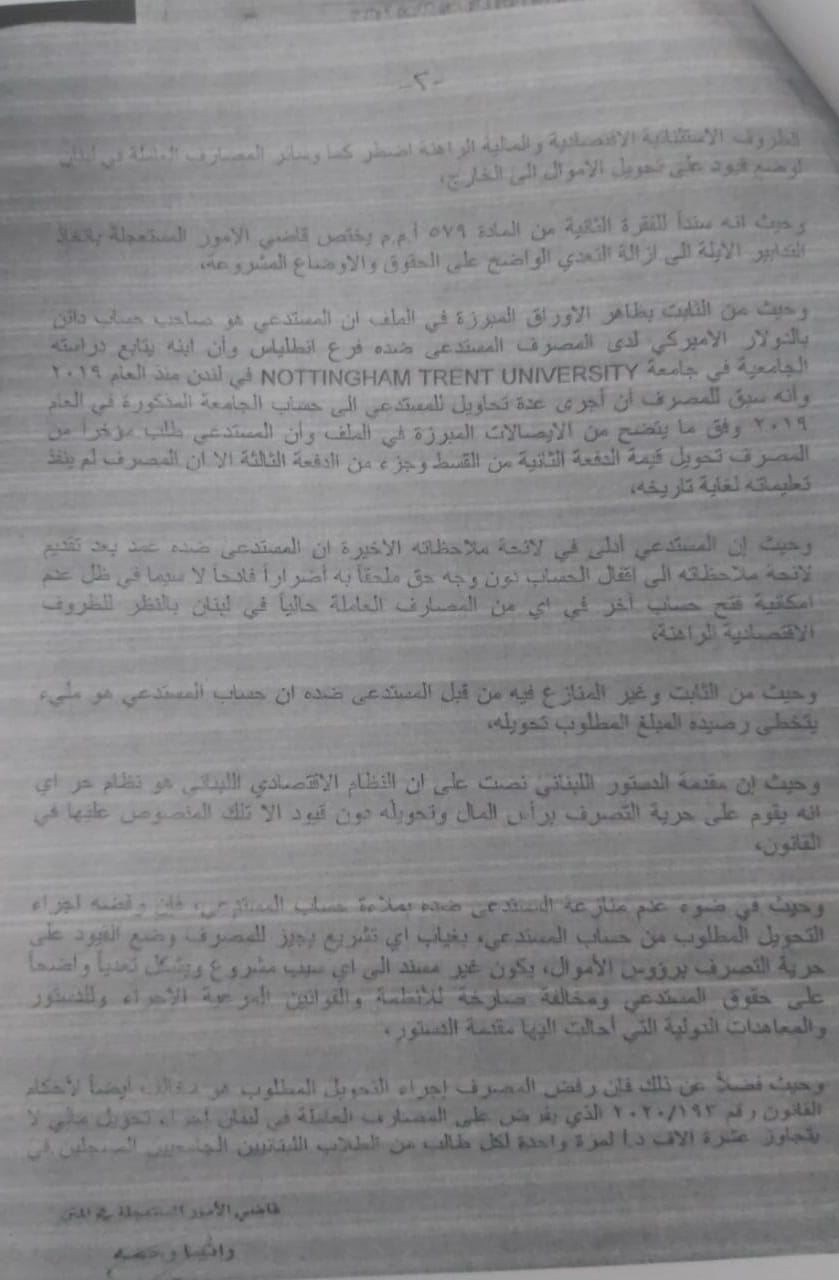 -٢-
الظروف الاستثنائية الاقتصادية والمالية الراهنة اضطر كما وسائر المصارف العاملة في لبنان
لوضع قيود على تحويل الاموال الى الخارج،
وحيث انه سنداً للفقرة الثانية من المادة ٥٧٩ أ.م.م يختص قاضي الامور المستعجلة باتخاذ
التدابير الآيلة الى ازالة التعدي الواضح على الحقوق والاوضاع المشروعة،
وحيث من الثابت بظاهر الاوراق المبرزة في الملف ان المستدعي هو صاحب حساب دائن
بالدولار الاميركي لدى المصرف المستدعى ضده فرع انطلياس وأن ابنه يتابع دراسته
الجامعية في جامعة NOTTINGHAM TRENT UNIVERSITY في لندن منذ العام ٢٠١٩
وأنه سبق للمصرف أن أجرى عدة تحاويل للمستدعي الى حساب الجامعة المذكورة في العام
٢٠١٩ وفق ما يتضح من الايصالات المبرزة في الملف وأن المستدعي طلب مؤخراً من
المصرف تحويل قيمة الدفعة الثانية من القسط وجزء من الدفعة الثالثة الا ان المصرف لم ينفذ
تعليماته لغاية تاريخه،
وحيث إن المستدعي أدلى في لائحة ملاحظاته الاخيرة ان المستدعى ضده عمد بعد تقديم
لائحة ملاحظاته الى اقفال الحساب دون وجه حق ملحقاً به أضراراً فادحاً لا سيما في ظل عدم
امكانية فتح حساب آخر في اي من المصارف العاملة حالياً في لبنان بالنظر للظروف
الاقتصادية الراهنة،
وحيث من الثابت وغير المنازع فيه من قبل المستدعى ضده ان حساب المستدعي هو مليء
يتخطى رصيده المبلغ المطلوب تحويله،
وحيث إن مقدمة الدستور اللبناني نصت على ان النظام الاقتصادي اللبناني هو نظام حر اي
انه يقوم على حرية التصرف برأس المال وتحويله دون قيود الا تلك المنصوص عليها في
القانون،
وحيث في ضوء عدم منازعة المستدعى ضده بملاءة حساب المستدعي، فإن رفضه اجراء
التحويل المطلوب من حساب المستدعي، بغياب اي تشريع يجيز للمصرف وضع القيود على
حرية التصرف برؤوس الأموال، يكون غير مسند الى اي سبب مشروع ويشكل تعدياً واضحاً
على حقوق المستدعي ومخالفة صارخة للأنظمة والقوانين المرعية الاجراء وللدستور
والمعاهدات الدولية التي أحالت اليها مقدمة الدستور،
وحيث فضلاً عن ذلك فان رفض المصرف إجراء التحويل المطلوب هو مخالف ايضاً لأحكام
القانون رقم ٢٠٢٠/١٩٣ الذي يفرض على المصارف العاملة في لبنان اجراء تحويل مالي لا
يتجاوز عشرة الاف د.أ لمرة واحدة لكل طالب من الطلاب اللبنانيين الجامعيين المسجلين في
قاضي الأمور المستعجلة في المتن